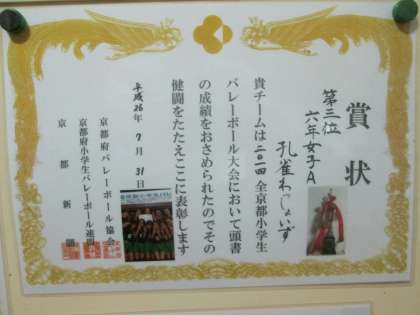 賞状
第三位
六年女子A
孔雀わじょいず
貴チームは二〇一四全京都小学生
バレーボール大会において頭書
の成績をおさめられたのでその
健闘をたたえここに表彰します
平成26年7月31日
京都府バレーボール協会
京都府小学生バレーボール連盟
京都新聞